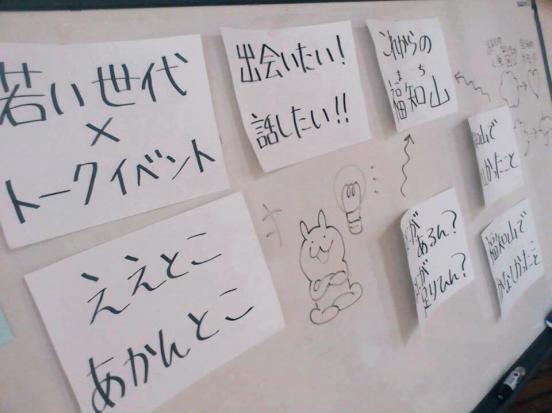 若い世代
×
トークイベント
出会いたい!
話したい!!
これからの
まち
福知山
ええとこ
あかんとこ
があるん?
が足りひん?
で
かたこと
福知山で
かなしかったこと